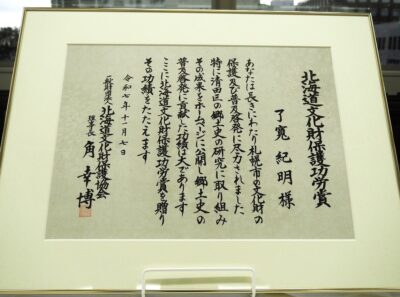 北海道文化財保護功労賞
了寛 紀明 様
あなたは長きにわたり札幌市の文化財の
保護及び普及啓発に尽力されました
特に清田区の郷土史の研究に取り組み
その成果をホームページに公開し郷土史の
普及啓発に貢献した功績は大であります
ここに北海道文化財保護功労賞を贈り
その功績をたたえます
令和七年十一月七日
一般財団法人 北海道文化財保護協会
理事長 角 幸博